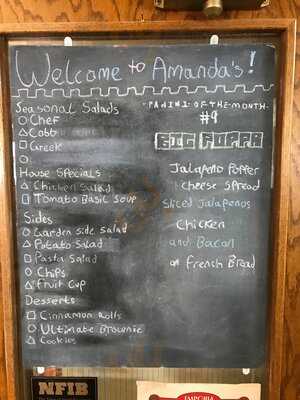 Welcome to Amanda's!
Seasonal Salads
Chef
Cobb
Greek
House Specials
Chicken Salad
Tomato Basil Soup
Sides
Garden side salad
Potato Salad
Pasta Salad
Chips
Fruit Cup
Desserts
Cinnamon Rolls
Ultimate Brownie
Cookies
-PANINI-OF-THE-MONTH-
#9
BIG POPPA
Jalapeno Popper
Cheese Spread
Sliced Jalapenos
Chicken
and Bacon
on French Bread
NFIB
EMPORIA